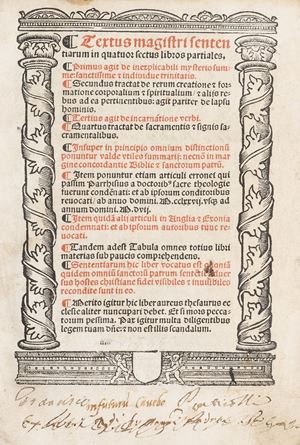 ¶ Textus magistri senten
tiarum in quatuor sectus libros partiales.
¶ Primus agit de inexplicabili mysterio sum
me sanctissime & indiuidue trinitatis.
¶ Secundus tractat de rerum creatione & for
matione corporalium & spiritualium & aliis re
bus ad ea pertinentibus: agit pariter de lapsu
hominis.
¶ Tertius agit de incarnatiōe verbi.
¶ Quartus tractat de sacramentis & signis sa
cramentalibus.
¶ Insuper in principio omnium distinctionū
ponuntur valde vtiles summarij: necnō in mar
gine concordantie Biblie & sanctorum patrū.
¶ Item ponuntur etiam articuli erronei qui
passim Parrhysius a doctorib⁹ sacre theologie
fuerunt condēnati: et ab ipsorum conditoribus
reuocati / ab anno domini. M. cclxxvij. vsq; ad
annum domini. M.D.vij.
¶ Item quidā alij articuli in Anglia & Exonia
condemnati: et ab ipsorum autoribus tūnc re
uocati.
¶ Tandem adest Tabula omnes totius libri
materias sub paucis comprehendens.
¶ Sententiarum hic liber vocatus est
quidem omniū sanctorū patrum
sus hostes christiane fidei visibiles & inuisibiles
recondite sunt in eo.
¶ Merito igitur hic liber aureus thesaurus ec
clesie aliter nuncupari debet. Et si most pecca
torum pessima. Par igitur multa diligentibus
legem tuam dn̄e: z non est illis scandalum.